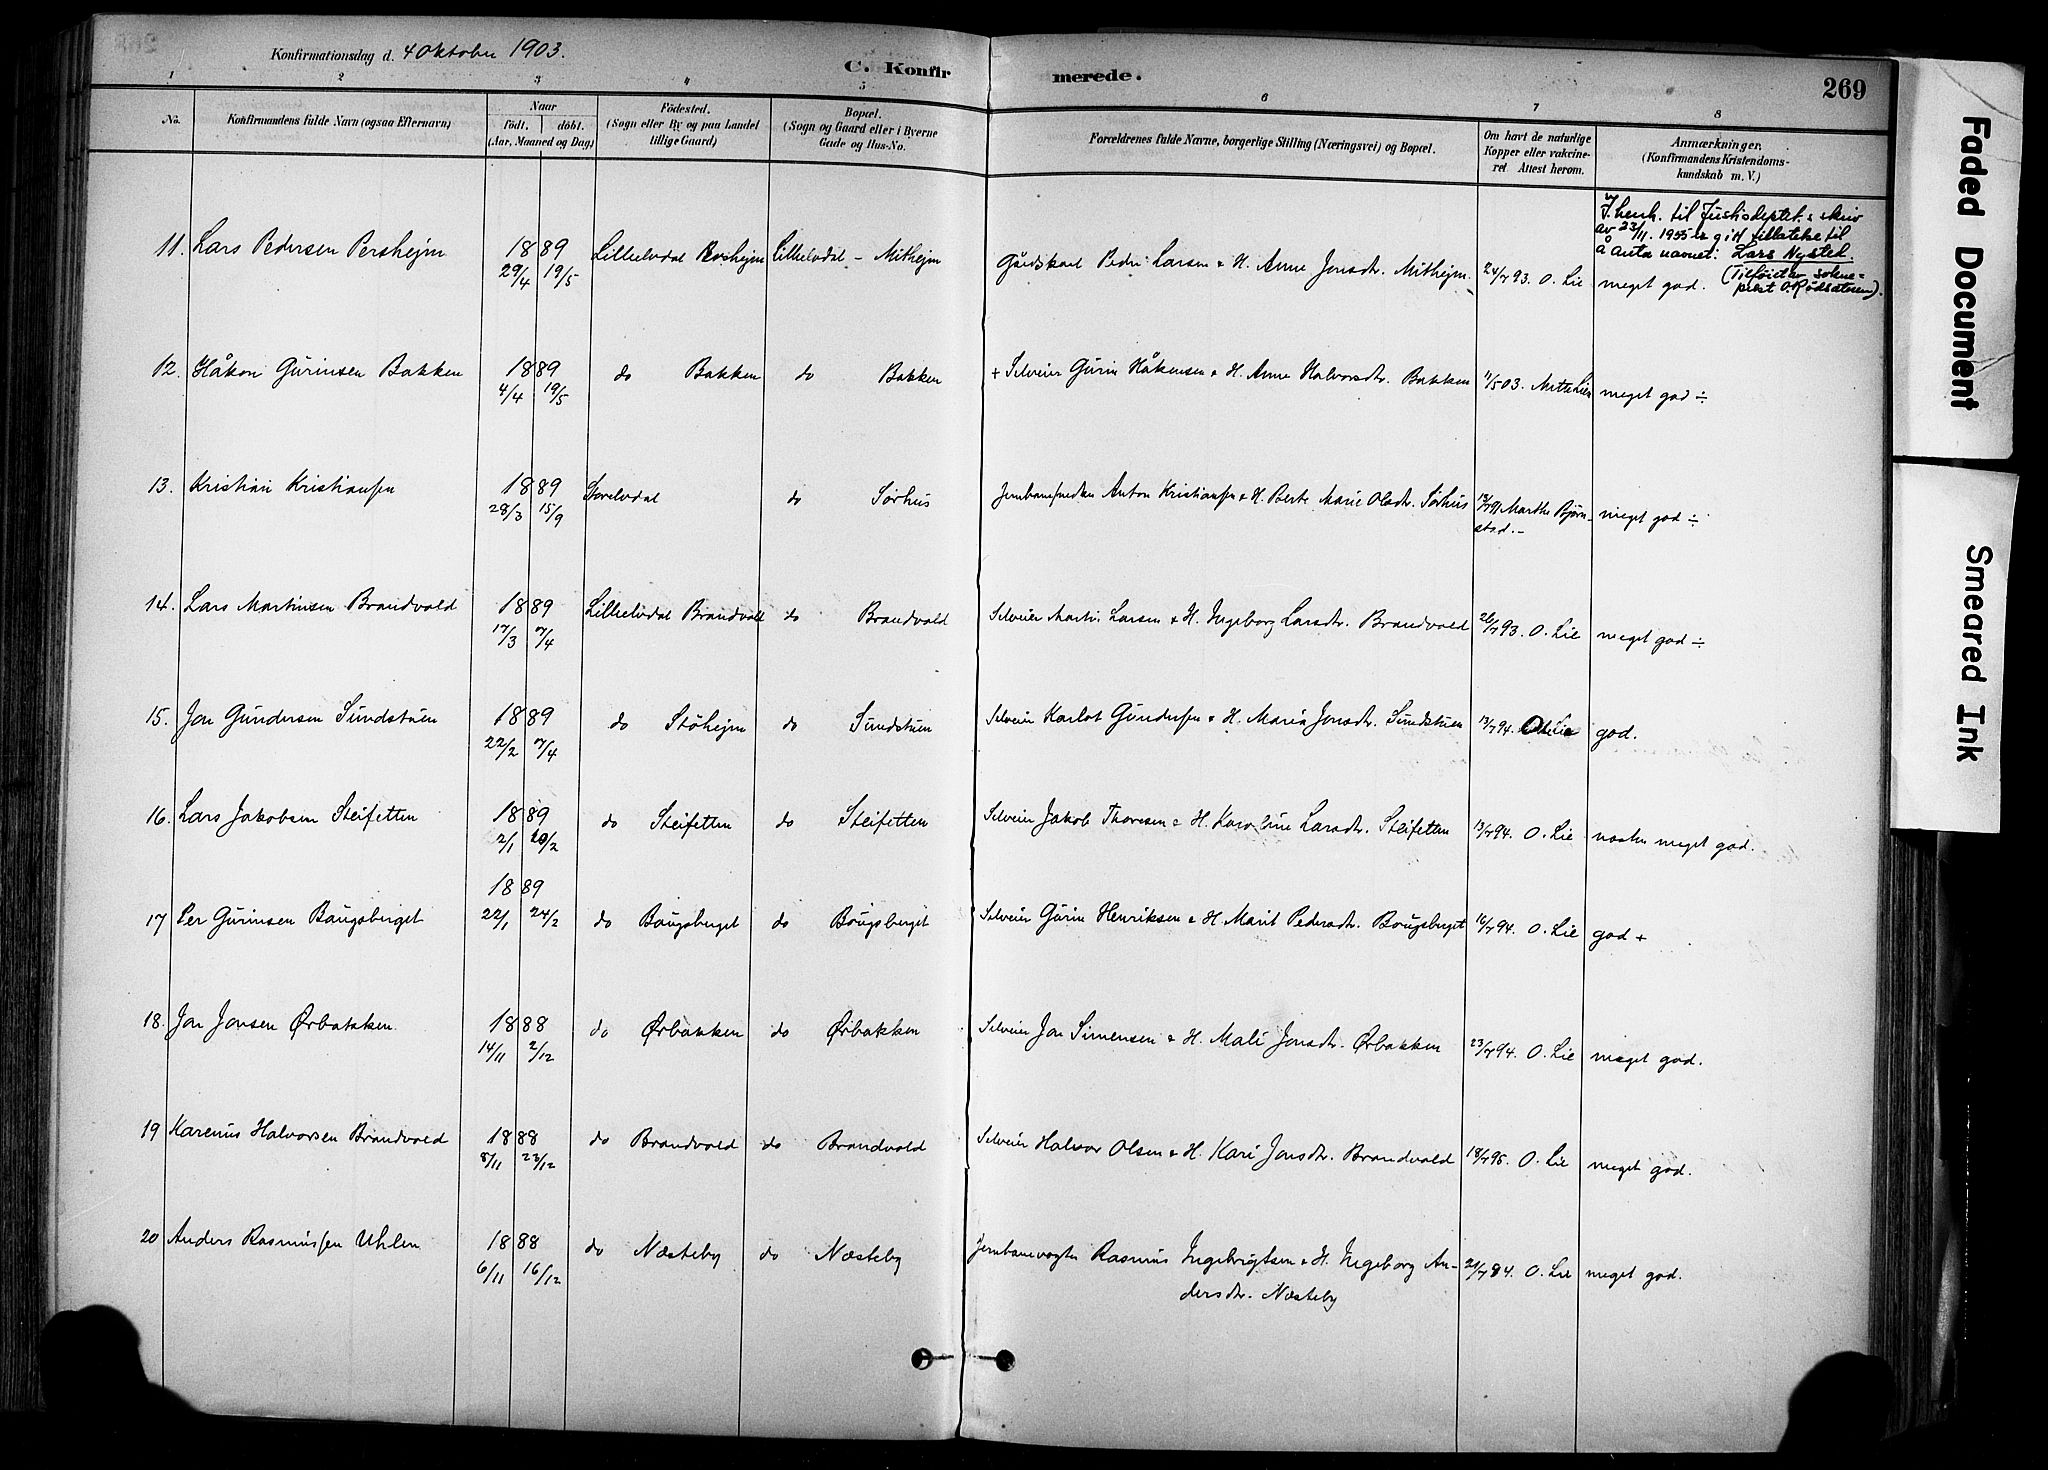 Konfirmationsdag d. 4 Oktober 1903.
C. Konfirmerede.
269
1 2 3 4 5 6 7 8
No.
Konfirmandens fulde Navn (ogsaa Efternavn)
Naar
födt, döbt.
(Aar, Maaned og Dag)
Födested.
(Sogn eller By og paa Landet
tillige Gaard)
Bopæl.
(Sogn og Gaard eller i Byerne
Gade og Hus-No.
Forældrenes fulde Navne, borgerlige Stilling (Næringsvei) og Bopæl.
Om havt de naturlige
Kopper eller vakcine-
ret Attest herom.
Anmærkninger.
(Konfirmandens Kristendoms-
kundskab m. V.)
I henh. til Justisdeptet.s skriv
av 23/11. 1955 er gitt tillatelse til
å anta navnet: Lars Nystet.
(Tilføiet av sokne-
prest O. Rødsæteren).
11. Lars Pedersen Pershejm 1889 29/4 19/5 Lilleelvdal Pershejm Lilleelvdal - Mithejm Gårdskarl Peder Larsen & H. Anne Jonsdtr. Mithejm. 24/7 93. O. Lie meget god.
12. Håkon Gurinsen Bakken 1889 4/4 19/5 do Bakken do Bakken + Selveier Gurin Håkensen & H. Anne Halvorsdtr. Bakken 11/5 03. meget god ÷
13. Kristian Kristiansen 1889 28/3 15/9 Storelvdal do Sørhus Jernbanesmeden Anton Kristiansen & H. Berte Marie Olsdtr. Sørhus Marthe Bjørn-
stad.- meget god ÷
14. Lars Martinsen Brandvold 1889 17/3 7/4 Lilleelvdal Brandvold do Brandvold Selveier Martin Larsen & H. Ingeborg Larsdtr. Brandvold 26/7 93. O. Lie meget god ÷
15. Jon Gundersen Sundstuen 1889 22/2 7/4 do Støhejm do Sundstuen Selveier Karlot Gundersen & H. Maria Jonsdtr. Sundstuen 13/7 94. O. Lie god.
16. Lars Jakobsen Steifetten 1889 2/1 20/2 do Steifetten do Steifetten Selveier Jakob Thoresen & H. Karoline Larsdtr. Steifetten 13/7 94. O. Lie næsten meget god.
17 Per Gurinsen Baugsberget 1889 22/1 24/2 do Baugsberget do Baugsberget Selveier Gurin Henriksen & H. Marit Pedersdtr. Baugsberget 16/7 94. O. Lie god +
18. Jon Jonsen Ørbakken. 1888 14/11 2/12 do Ørbakken do Ørbakken Selveier Jon Simensen & H. Mali Jonsdtr. Ørbakken 23/7 94. O. Lie meget god.
19 Karenus Halvorsen Brandvold 1888 8/11 23/12 do Brandvold do Brandvold Selveier Halvor Olsen & H. Kari Jonsdtr. Brandvold 18/7 95. O. Lie meget god.
20 Anders Rasmussen Uhlen 1888 6/11 16/12 do Næsteby do Næsteby Jernbanevogter Rasmus Ingebrigtsen & H. Ingeborg An-
dersdtr. Næsteby 21/7 84. O. Lie meget god.
Faded Document
Smeared Ink